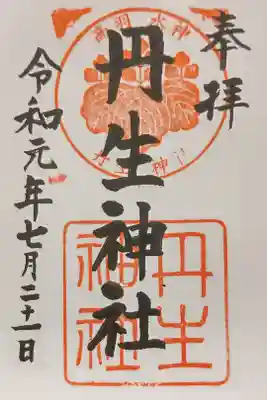 奉拝
丹生神社
令和元年七月二十一日
丹生
神社